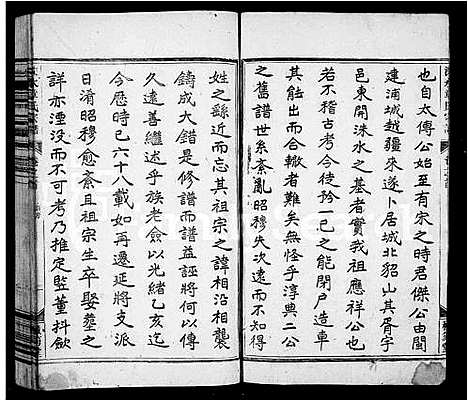 也自太傅公始至有宋之時君傑公由閩
建浦城越疆來遂卜居城北貂山其胥宇
邑東開洙水之基者實我祖應祥公也
若不稽古考今徒矜一己之能閉户造車
其能合轍者難矣無怪乎淳典二公
之舊譜世系紊亂昭穆失次遠而不知得
姓之繇近而忘其祖宗之諱相沿相襲
鑄成大錯是修譜而譜益誣將何以傳
久遠善繼述乎族老僉以光緒乙亥迄
今歷時已六十八載如再遷延將支派
日淆昭穆愈紊且祖宗生卒娶塟之
詳亦湮没而不可考乃推定監董抖歛